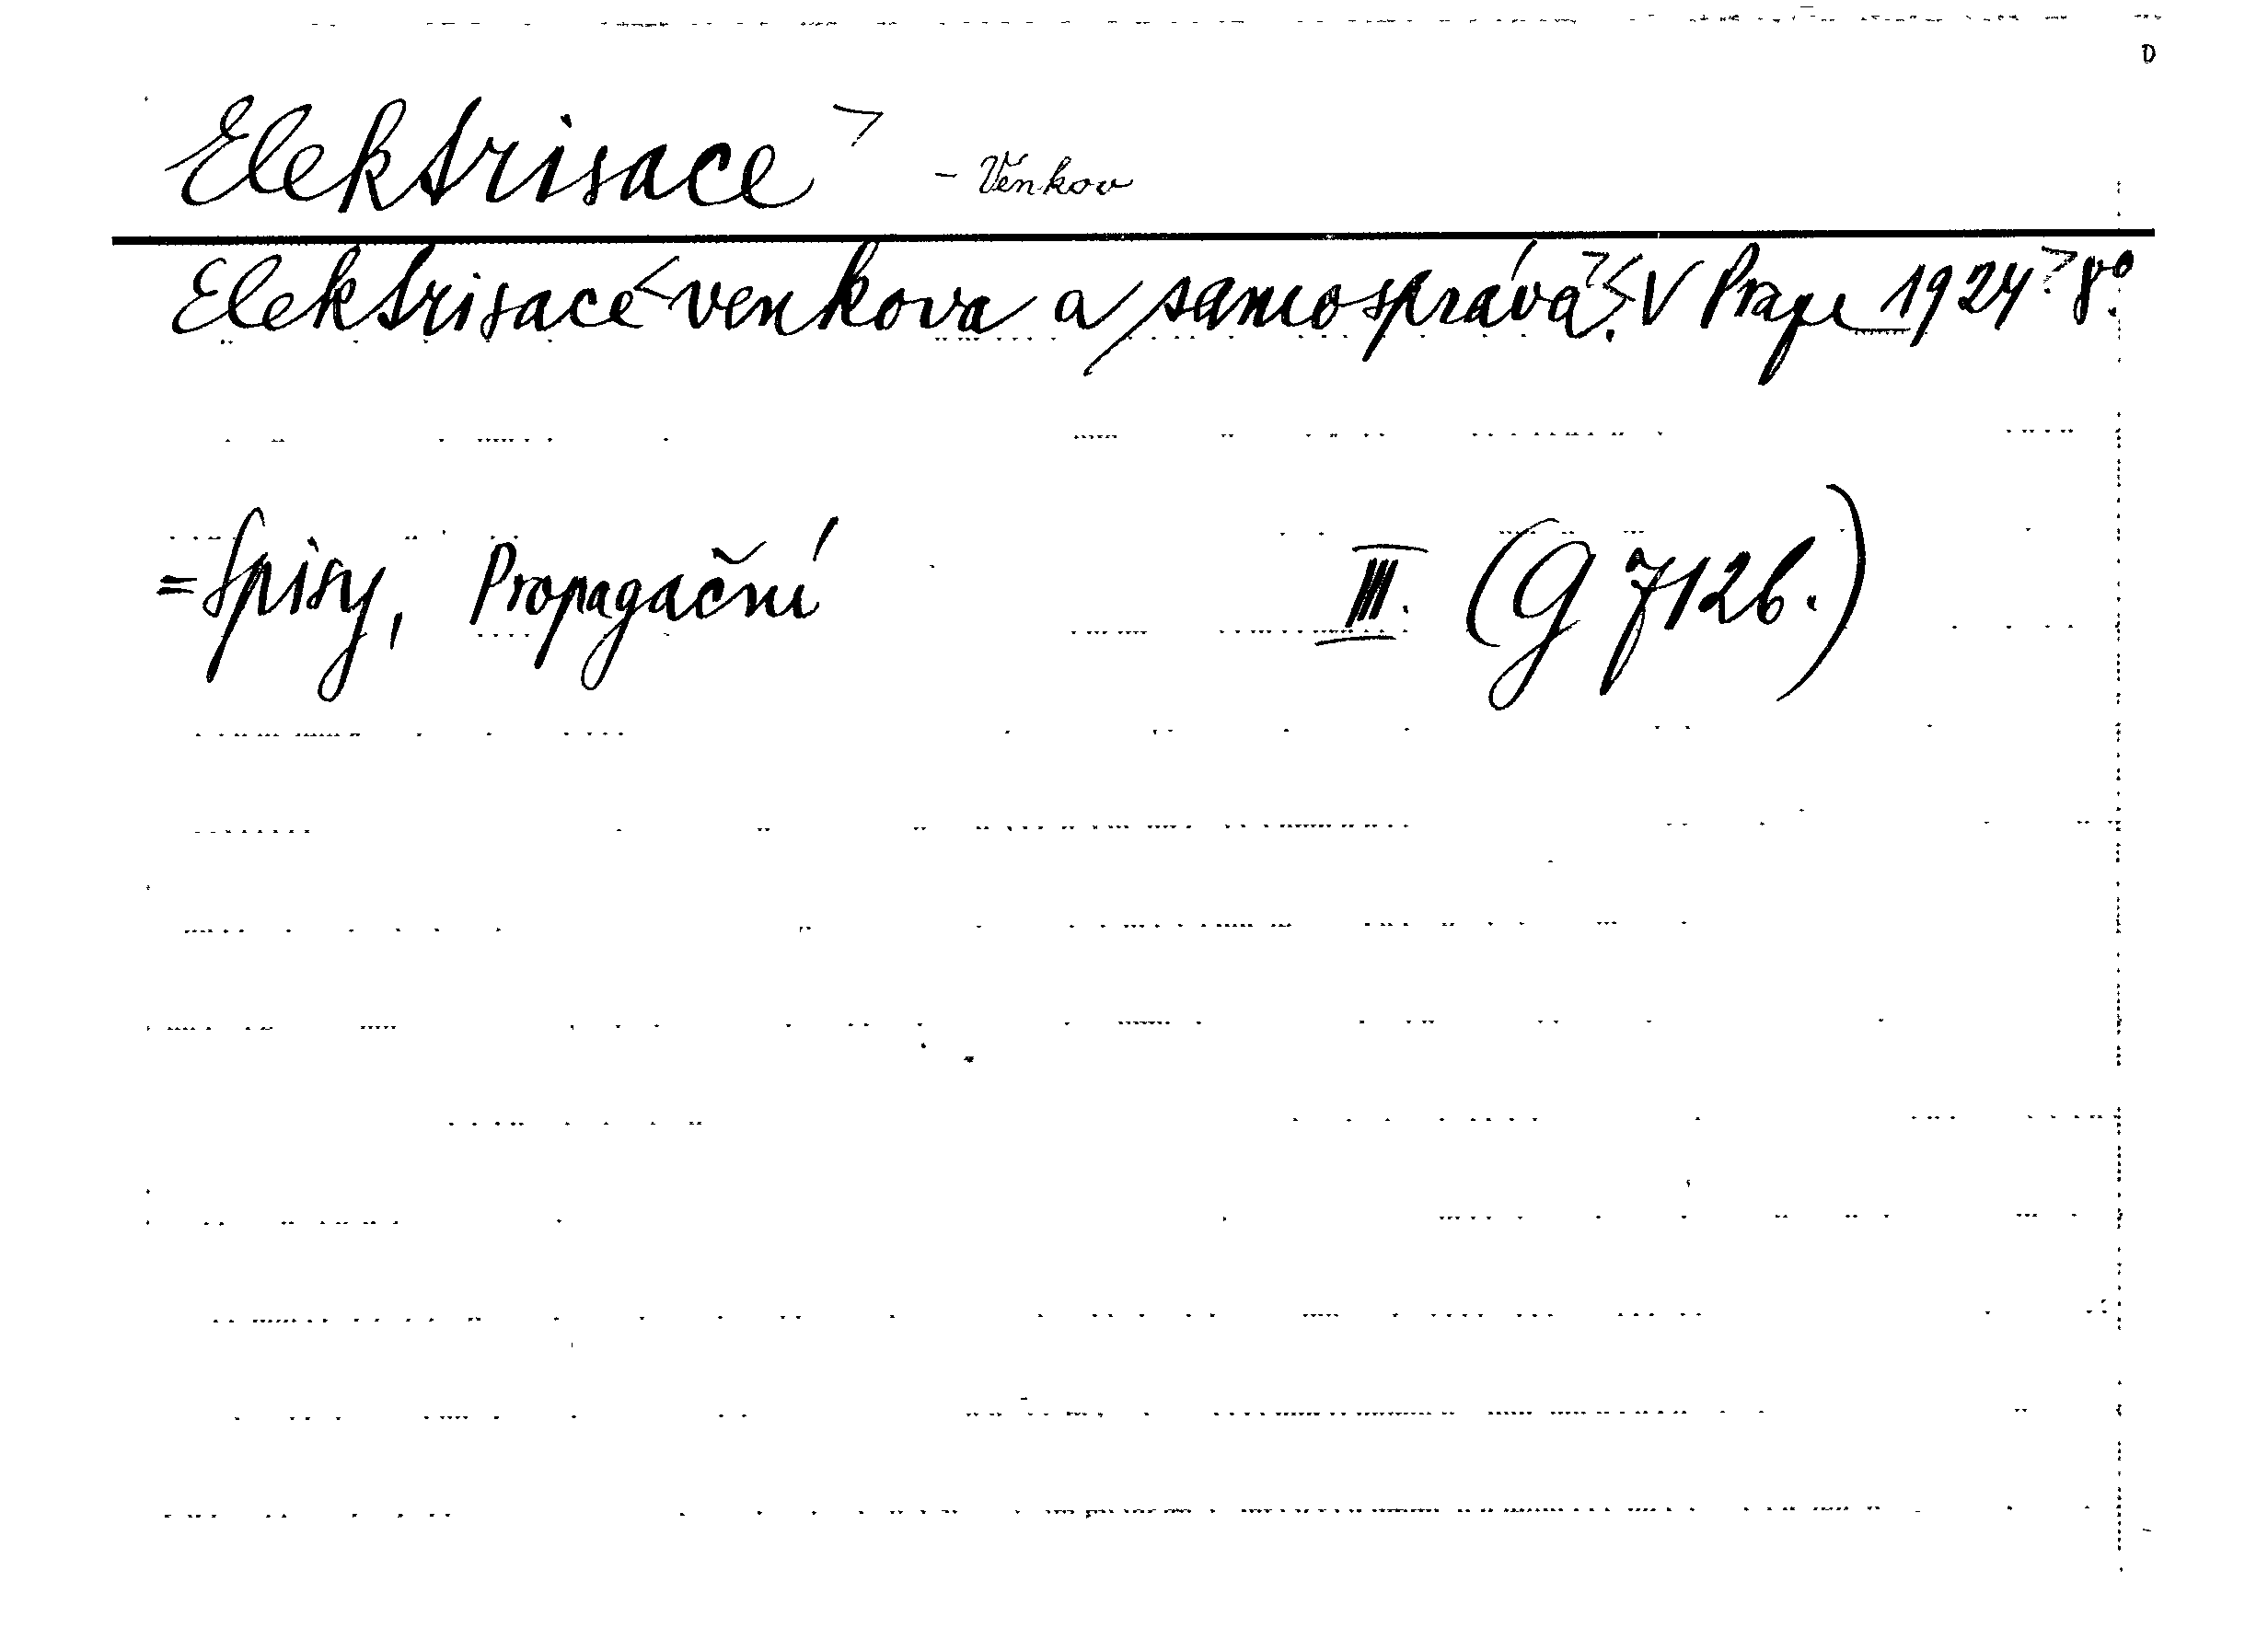 D
Elektrisace - Venkov
Elektrisace venkova a samospráva. V Praze 1924 8°.
= Spisy, Propagační III. (G 7126.)